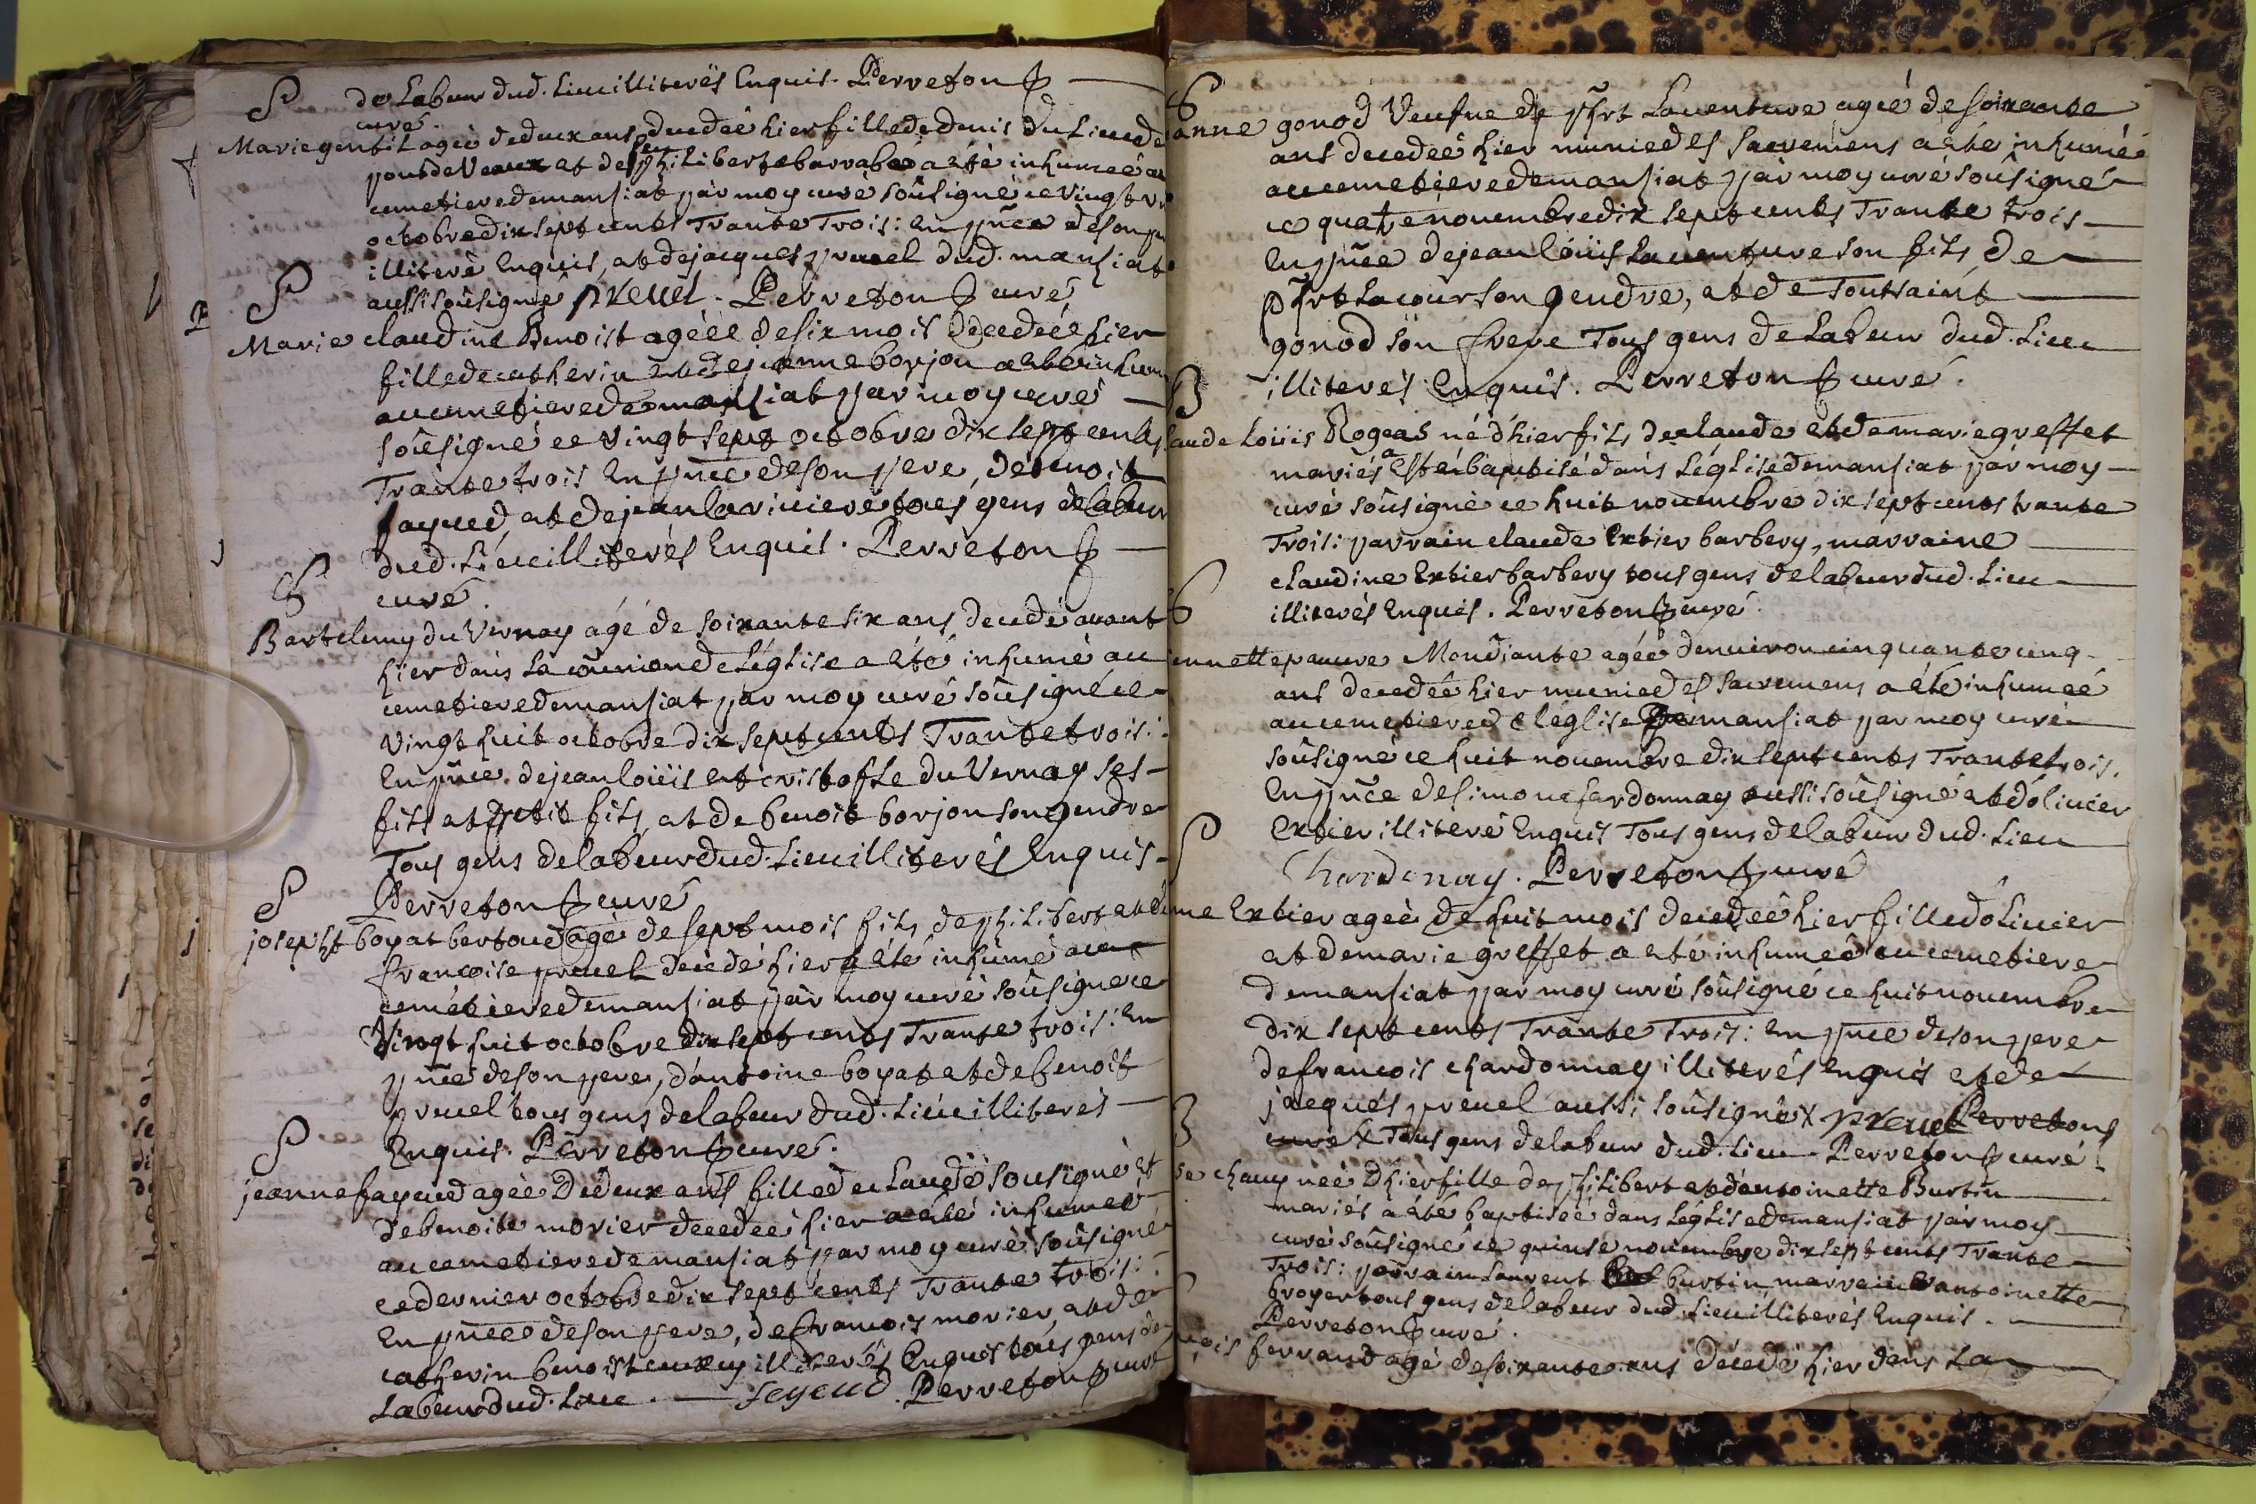 S
de Labeur dud. Lieu illiterés Enquis. Perreton
curé.
Marie gentil agée dedeux ans decedeé hier fille de denis du Lieu de
pont de Veaux et de philiberte barrabé a eté inhumeé au
cemetiere demansiat par moy curé soûsigné ce vingt
octobre dix sept cents Trante Trois: En pñce de son
illiteré Enquis, et de jacques pruel dud. mansiat
aussi soûsigné preuel. Perreton curé
S
Marie claudine Benoist agéée de six mois decedeé hier
fille de catherin et de jeanne borjon a eté inhumeé
au cemetiere de mansiat par moy curé
soûsigné ce vingt sept octobre dix sept cents
Trante trois En pñce de son pere, de benoit
fayeud, et de jean lariviere tous gens de labeur
dud. Lieu illiterés Enquis. Perreton
curé.
Bartelemy du Vernay agé de soixante six ans decedé avant
hier dans La com̃union de L'église a eté inhumé au
cemetiere demansiat par moy curé soûsigné ce
Vingt huit octobre dix sept cents Trante trois:
En pñce de jean loüis et cristofle du Vernay ses
fils et petit fils, et de benoit borjon son gendre
Tous gens de labeur dud. Lieu illiterés Enquis
Perreton curé
S
josepht boyat bertoud agé de sept mois fils de philibert et de
francoise pruel decedé hier a eté inhumé au
cemétiere demansiat par moy curé soûsigné ce
Vingt huit octobre dix sept cents Trante trois: En
pñce de son pere, d'antoine boyat et de benoit
pruel tous gens de labeur dud. Lieu illiterés
Enquis. Perreton curé.
S
jeanne fayeud agée De deux ans fille de claude soûsigné et
de benoite morier decedeé hier a eté inhumeé
au cemetiere de mansiat par moy curé soûsigné
ce dernier octobre dix sept cents Trante trois:
En pñce de son pere, de francois morier, et de
catherin benoist ceux cy illiterés Enquis tous gens de
Labeur dud. Lieu. feyeud. Perreton curé
anne gonod Veufue de pñrt Lauenture ageé de soixante
ans decedeé hier munie des sacremens a eté inhumeé
au cemetiere demansiat par moy curé soûsigné
ce quatre nouembre dix sept cents Trante trois
En pñce de jean loüis Lauenture son fils de
pñrt Lacour son gendre, et de Toutsaint
gonod son frere Tous gens de Labeur dud. Lieu
illiterés Enquis. Perreton curé.
B
aude Loüis Rogeas né d'hier fils de claude et de marie greffet
mariés a Esté baptisé dans L'église demansiat par moy
curé soûsigné ce huit nouembre dix sept cents trante
Trois: parrain claude Extier barbery, marraine
claudine Extier barbery tous gens de labeur dud. Lieu
illiterés Enquis. Perreton curé.
ennette pauure Mondiante ageé d'enuiron cinquante cinq
ans decedeé hier munie des sacremens a eté inhumeé
au cemetiere de l'église de mansiat par moy curé
soûsigné ce huit nouembre dix sept cents Trante trois.
En pñce de simon chardonnay aussi soûsigné et d'oliuier
Extier illiteré Enquis Tous gens de labeur dud. Lieu
Chardonay. Perreton curé
S
ne Extier ageé de huit mois decedeé hier fille d'oliuier
et de marie greffet a eté inhumeé au cemetiere
de mansiat par moy curé soûsigné ce huit nouembre
dix sept cents Trante Trois: En pñce de son pere
de francois chardonnay illiterés Enquis et de
jacques preuel aussi soûsigné X preuel Perreton
curé X Tous gens de labeur dud. Lieu Perreton curé
se chaup neé D'hier fille de philibert et d'antoinette Burtin
mariés a été baptiseé dans L'église demansiat par moy
curé soûsigné ce quinse nouembre dix sept cents Trante
Trois: parrain Laurent burtin marraine antoinette
broyer tous gens de labeur dud. Lieu illiterés Enquis.
Perreton curé.
cois ferrand agé de soixante ans décedé hier dans La